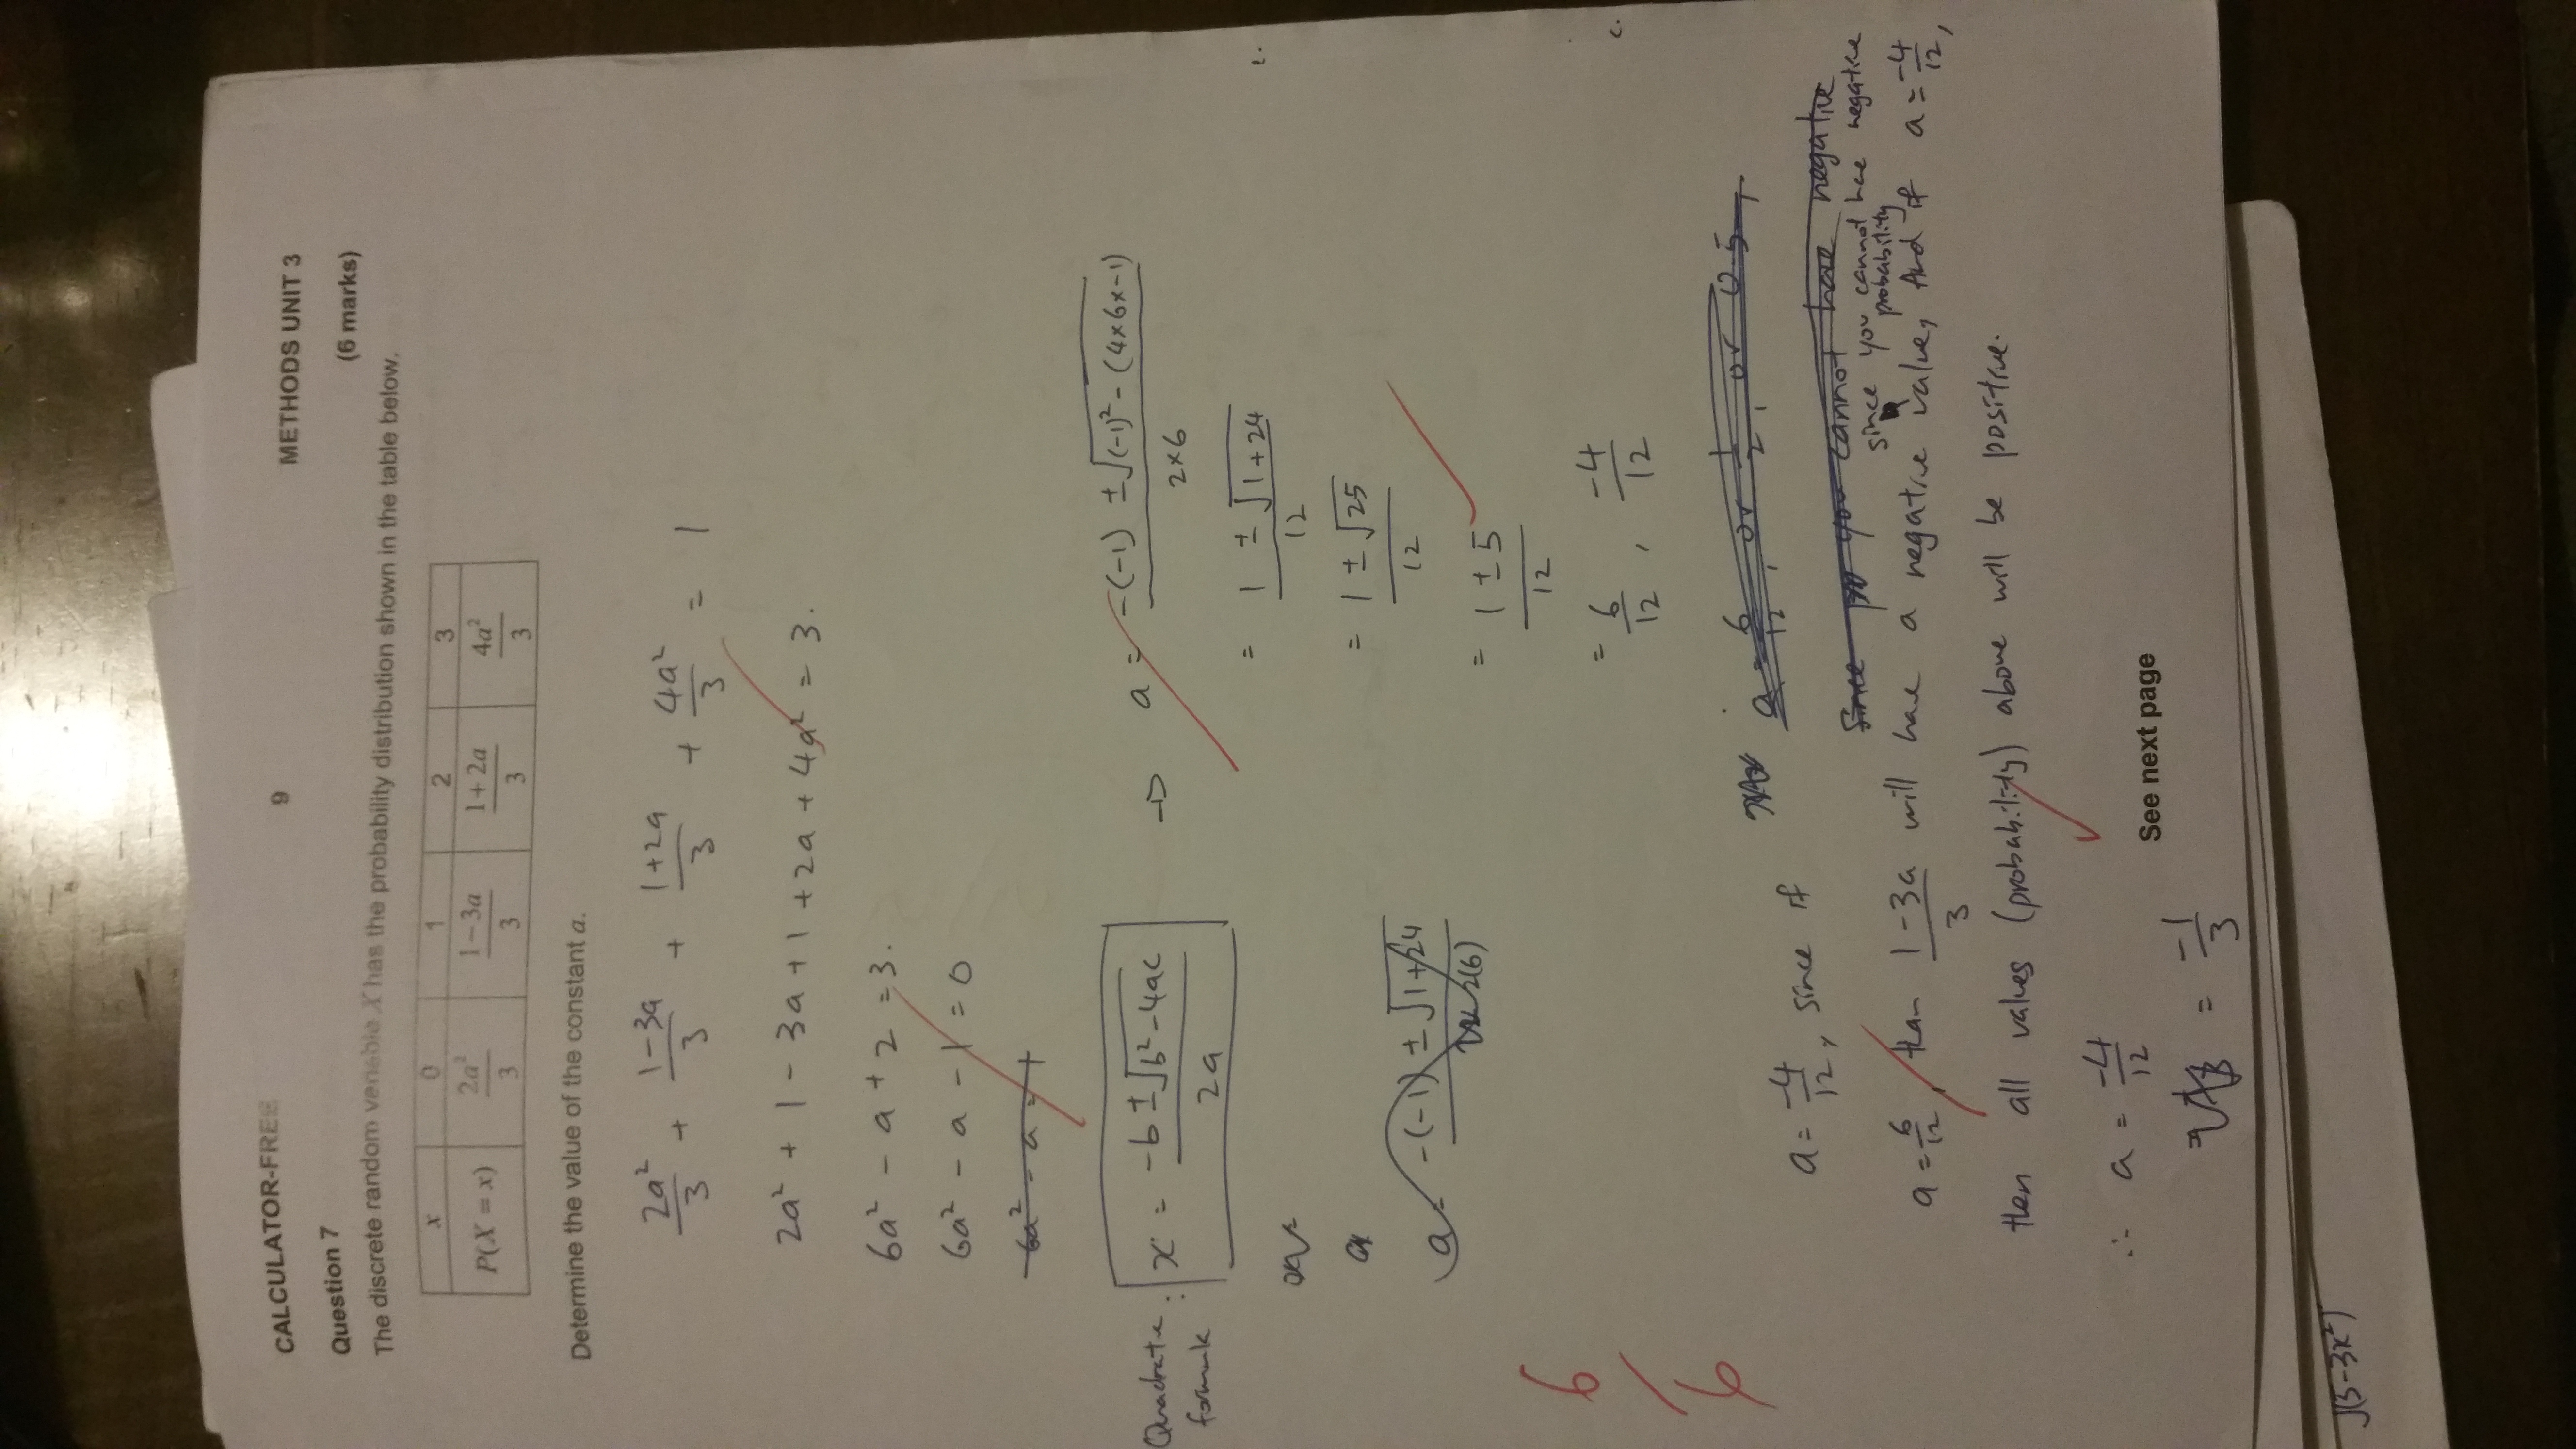 CALCULATOR-FREE 9 METHODS UNIT 3
Question 7 (6 marks)
The discrete random variable X has the probability distribution shown in the table below.
x 0 1 2 3
P(X = x) 2a²/3 1-3a/3 1+2a/3 4a²/3
Determine the value of the constant a.
2a²/3 + 1-3a/3 + 1+2a/3 + 4a²/3 = 1
2a² + 1 - 3a + 1 + 2a + 4a² = 3.
6a² - a + 2 = 3.
6a² - a - 1 = 0
6a² - a = 1
Quadratic formula : x = -b ± √b²-4ac / 2a
→ a = -(-1) ± √(-1)² - (4×6×-1) / 2×6
= 1 ± √1+24 / 12
= 1 ± √25 / 12
= 1 ± 5 / 12
= 6/12 , -4/12
a = -(-1) ± √1+24 / 2(6)
6/6
a = 6/12, or 1/2, or 0.5,
Since you cannot have negative
a = -4/12, since if
since you cannot have negative probability
a = 6/12, than 1-3a/3 will have a negative value, And if a = -4/12,
then all values (probability) above will be positive.
∴ a = -4/12
= -1/3
See next page
√(3-3x²)